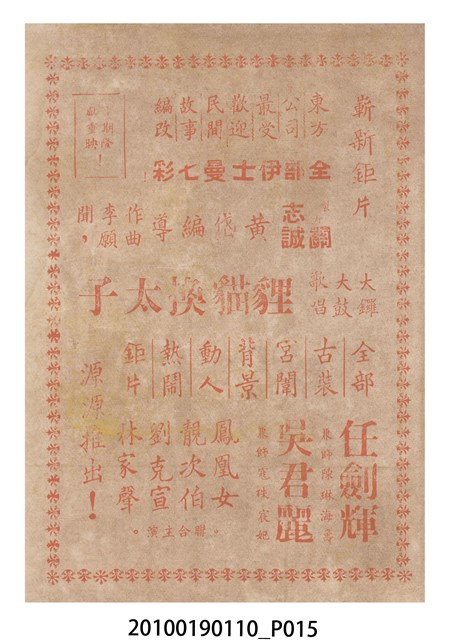 嶄新鉅片
東方公司最受歡迎民間故事編改
全部伊士曼七彩
關志誠
黃 編導
作曲李願聞，
大鑼大鼓歌唱
貍貓換太子
全部古裝宮闈背景動人熱鬧鉅片
任劍輝
兼飾陳琳
吳君麗
兼飾寇珠 宸妃
鳳凰女
靚次伯
劉克宣
林家聲
聯合主演。
源源推出！
期隆重
映！
20100190110_P015